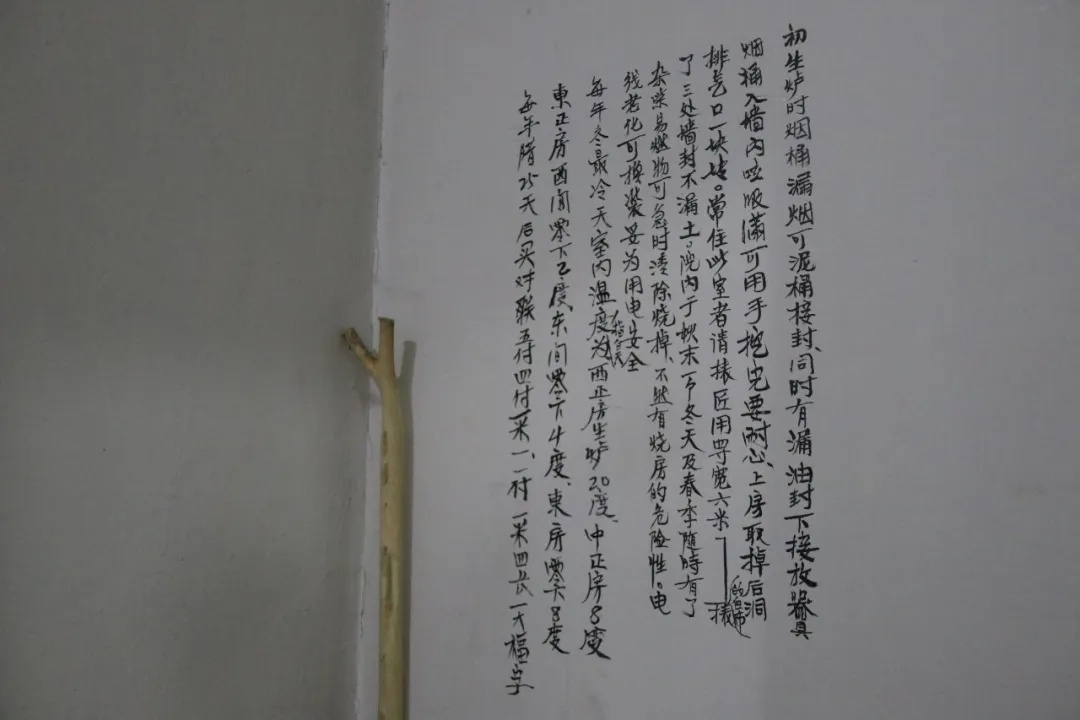 初生炉时烟桶漏烟可泥桶接封、同时有漏油封下接放器具
烟桶入墙内吸满可用手挖完要耐心、上房取掉后洞
排气口一块砖。常住此室者请裱匠用四宽六米的白布一裱
了三处墙封不漏土。院内于秋末下冬天及春季随時有了
杂柴易燃物可急时清除烧掉、不然有烧房的危险性。电
线老化可换装妥为用电安全
每年冬最冷天室内温度为西正房生炉20度、中正房8度
東正房西间零下2度、东间零下4度、東房零下8度
每年腊25天后买对联五付四付一米一、一付一米四长一大福字